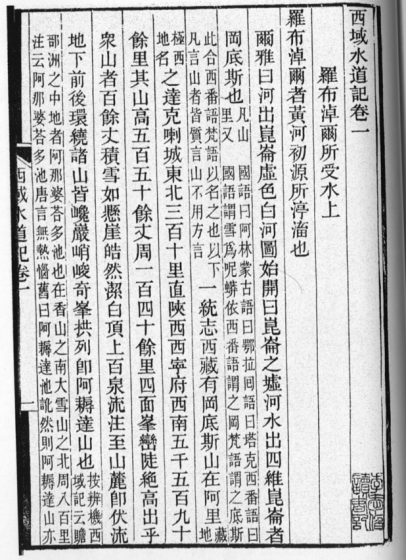 西域水道記卷一
羅布淖爾所受水上
羅布淖爾者黃河初源所渟滀也
爾雅曰河出崑崙虛色白河圖始開曰崑崙之墟河水出四維崑崙者
岡底斯也
凡山 國語曰阿林蒙古語曰鄂拉囘語曰塔克西番語曰
里又 國語謂雪爲呢蟒依西番語謂之岡梵語謂之底斯
此合西番語梵語以名之也以下
凡言山者皆質言山不用方言
一統志西藏有岡底斯山在阿里
藏
地
極西
地名
之達克喇城東北三百十里直陜西西寧府西南五千五百九十
餘里其山高五百五十餘丈周一百四十餘里四面峯巒陡絶高出乎
衆山者百餘丈積雪如懸崖皓然潔白頂上百泉流注至山麓卽伏流
地下前後環繞諸山皆巉巖峭峻奇峯拱列卽阿耨達山也
按辨機西
域記云贍
部洲之中地者阿那婆荅多池也在香山之南大雪山之北周八百里
注云阿那婆荅多池唐言無熱惱舊曰阿耨達池訛然則阿耨達山亦
西域水道記卷一
一